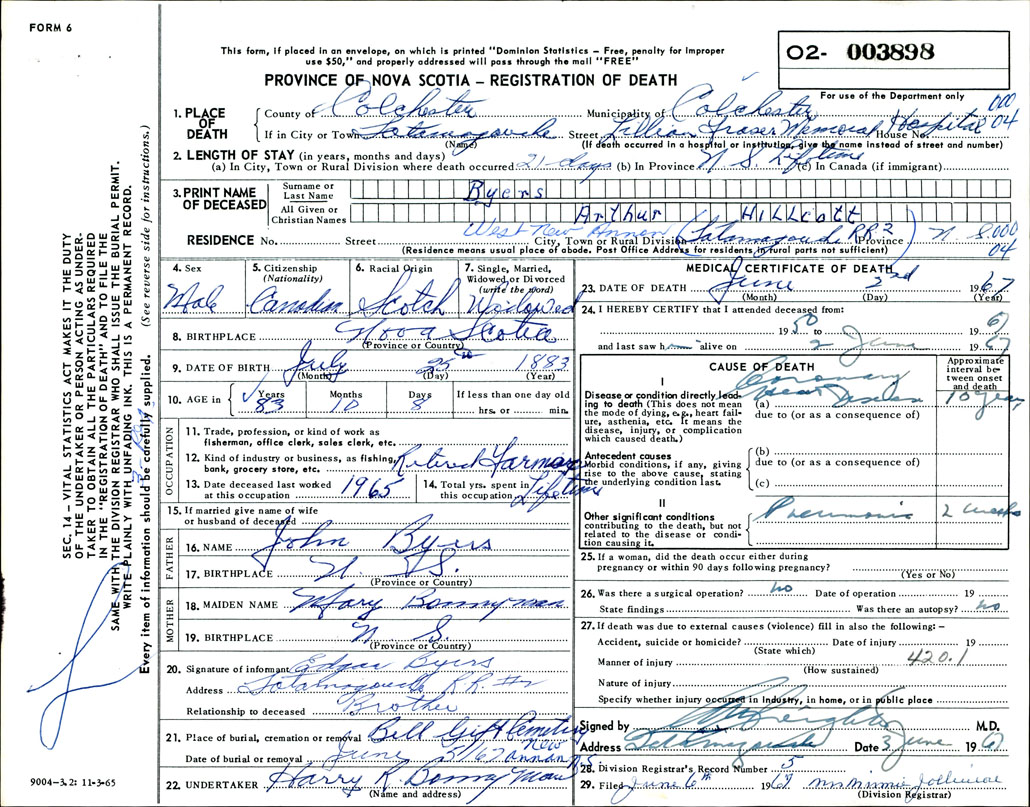 FORM 6
This form, if placed in an envelope, on which is printed "Dominion Statistics – Free, penalty for improper
use $50," and properly addressed will pass through the mail "FREE"
02- 003898
PROVINCE OF NOVA SCOTIA – REGISTRATION OF DEATH
For use of the Department only
000
04
1. PLACE OF DEATH
County of Colchester Municipality of Colchester
If in City or Town Tatamagouche Street Lillian Fraser Memorial Hospital House No.
(Name) (If death occurred in a hospital or institution, give the name instead of street and number)
2. LENGTH OF STAY (in years, months and days)
(a) In City, Town or Rural Division where death occurred 21 days (b) In Province N S. Lifetime (c) In Canada (if immigrant)
3. PRINT NAME OF DECEASED
Surname or Last Name Byers
All Given or Christian Names Arthur Hillcott
West New Annan
RESIDENCE No. Street City, Town or Rural Division (Tatamagouche RR 2) Province N S.000
04
(Residence means usual place of abode. Post Office Address for residents in rural parts not sufficient)
4. Sex Male
5. Citizenship (Nationality) Canadian
6. Racial Origin Scotch
7. Single, Married, Widowed or Divorced (write the word) Widowed
8. BIRTHPLACE Nova Scotia
(Province or Country)
9. DATE OF BIRTH July 25 1883
(Month) (Day) (Year)
10. AGE in Years 83 Months 10 Days 8 If less than one day old hrs. or min.
OCCUPATION
11. Trade, profession, or kind of work as fisherman, office clerk, sales clerk, etc.
12. Kind of industry or business, as fishing, bank, grocery store, etc. Retired Farmer
13. Date deceased last worked at this occupation 1965
14. Total yrs. spent in this occupation Lifetime
15. If married give name of wife or husband of deceased
FATHER
16. NAME John Byers
17. BIRTHPLACE N. S.
(Province or Country)
MOTHER
18. MAIDEN NAME Mary Bonnyman
19. BIRTHPLACE N. S.
(Province or Country)
20. Signature of informant Edgar Byers
Address Tatamagouche R.R. #2
Relationship to deceased Brother
21. Place of burial, cremation or removal Bell Gift Cemetery New Annan N.S
Date of burial or removal June 5/67
22. UNDERTAKER Harry R. Bonnyman
(Name and address)
MEDICAL CERTIFICATE OF DEATH
23. DATE OF DEATH June 2nd 1967
(Month) (Day) (Year)
24. I HEREBY CERTIFY that I attended deceased from:
1950 to 1967
and last saw him alive on 2 June 1967
CAUSE OF DEATH
Approximate interval between onset and death
I
Disease or condition directly leading to death (This does not mean the mode of dying, e.g., heart failure, asthenia, etc. It means the disease, injury, or complication which caused death.)
(a) Coronary Heart Disease 10 years
due to (or as a consequence of)
Antecedent causes
Morbid conditions, if any, giving rise to the above cause, stating the underlying condition last.
(b)
due to (or as a consequence of)
(c)
II
Other significant conditions contributing to the death, but not related to the disease or condition causing it.
Pneumonia 2 weeks
25. If a woman, did the death occur either during pregnancy or within 90 days following pregnancy?
(Yes or No)
26. Was there a surgical operation? no Date of operation 19
State findings Was there an autopsy? no
27. If death was due to external causes (violence) fill in also the following: –
Accident, suicide or homicide? Date of injury 19
(State which)
420.1
Manner of injury
(How sustained)
Nature of injury
Specify whether injury occurred in industry, in home, or in public place
Signed by M.D.
Address Tatamagouche Date 3 June 1967
28. Division Registrar's Record Number 5
29. Filed June 6th 1967 Mrs Minnie
(Division Registrar)
SEC. 14 – VITAL STATISTICS ACT MAKES IT THE DUTY
OF THE UNDERTAKER OR PERSON ACTING AS UNDER-
TAKER TO OBTAIN ALL THE PARTICULARS REQUIRED
IN THE "REGISTRATION OF DEATH" AND TO FILE THE
SAME WITH THE DIVISION REGISTRAR WHO SHALL ISSUE THE BURIAL PERMIT.
WRITE PLAINLY WITH UNFADING INK. THIS IS A PERMANENT RECORD.
Every item of information should be carefully supplied. (See reverse side for instructions.)
9004–3.2: 11-3-65